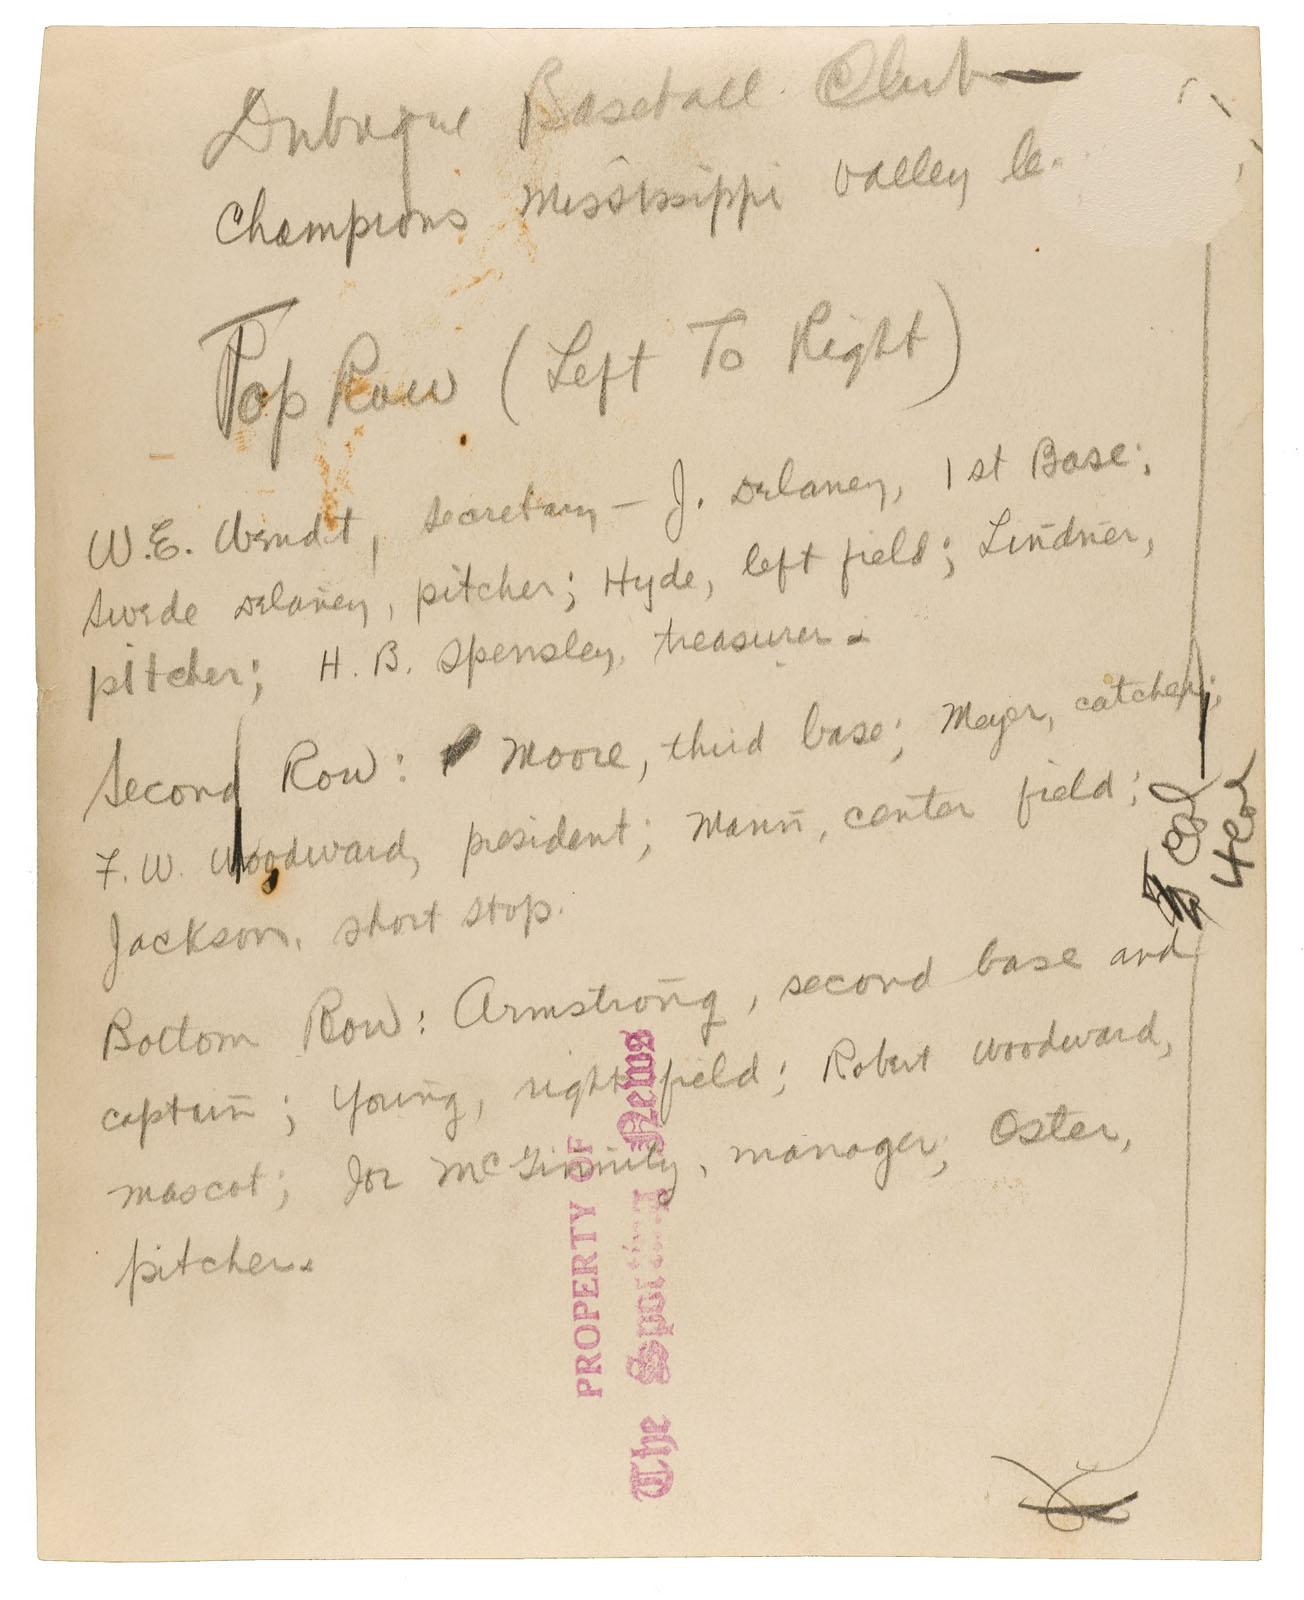 Dubuque Baseball Club
Champions Mississippi Valley le.
Top Row (Left To Right)
W.E. Wendt, secretary – J. Delaney, 1st Base;
Swede Delaney, pitcher; Hyde, left field; Lindner,
pitcher; H. B. Spensley, treasurer.
Second Row: Moore, third base; Meyer, catcher;
F. W. Woodward, president; Mann, center field;
Jackson, short stop.
Bottom Row: Armstrong, second base and
captain; Young, right field; Robert Woodward,
mascot; Joe McGinnity, manager; Oster,
pitcher.
PROPERTY OF
The Sporting News
4 Col